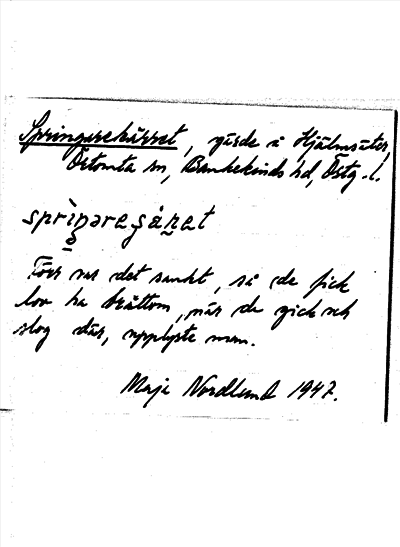 Springerekärret, gärde i Hjälmsäter,
Örtomta sn, Bankekinds hd, Östg. l.
Förr var det sankt, så de fick
lov ha bråttom, när de gick och
slog där, upplyste mom.
Maja Nordlund 1947.